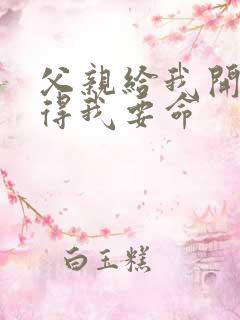 父親給我開
得我要命
白玉糕